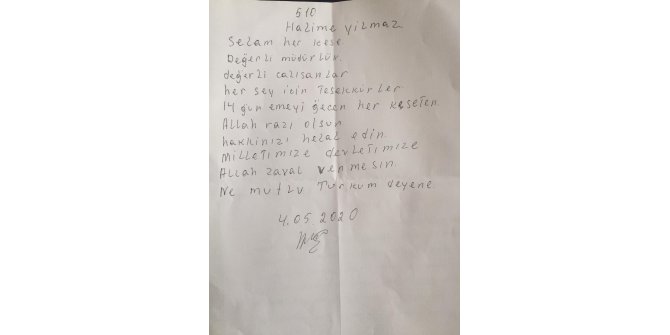 510
Halime Yilmaz
Selam her kese
Değerli müdürlük.
değerli calisanlar
her sey icin Tesekkürler
14 gün emeyi geçen her keseten
Allah razı olsun
hakkinizi helal edin
milleTimize devleTimize
Allah zaval vermesin
Ne mutlu Turkum deyene
4.05 2020